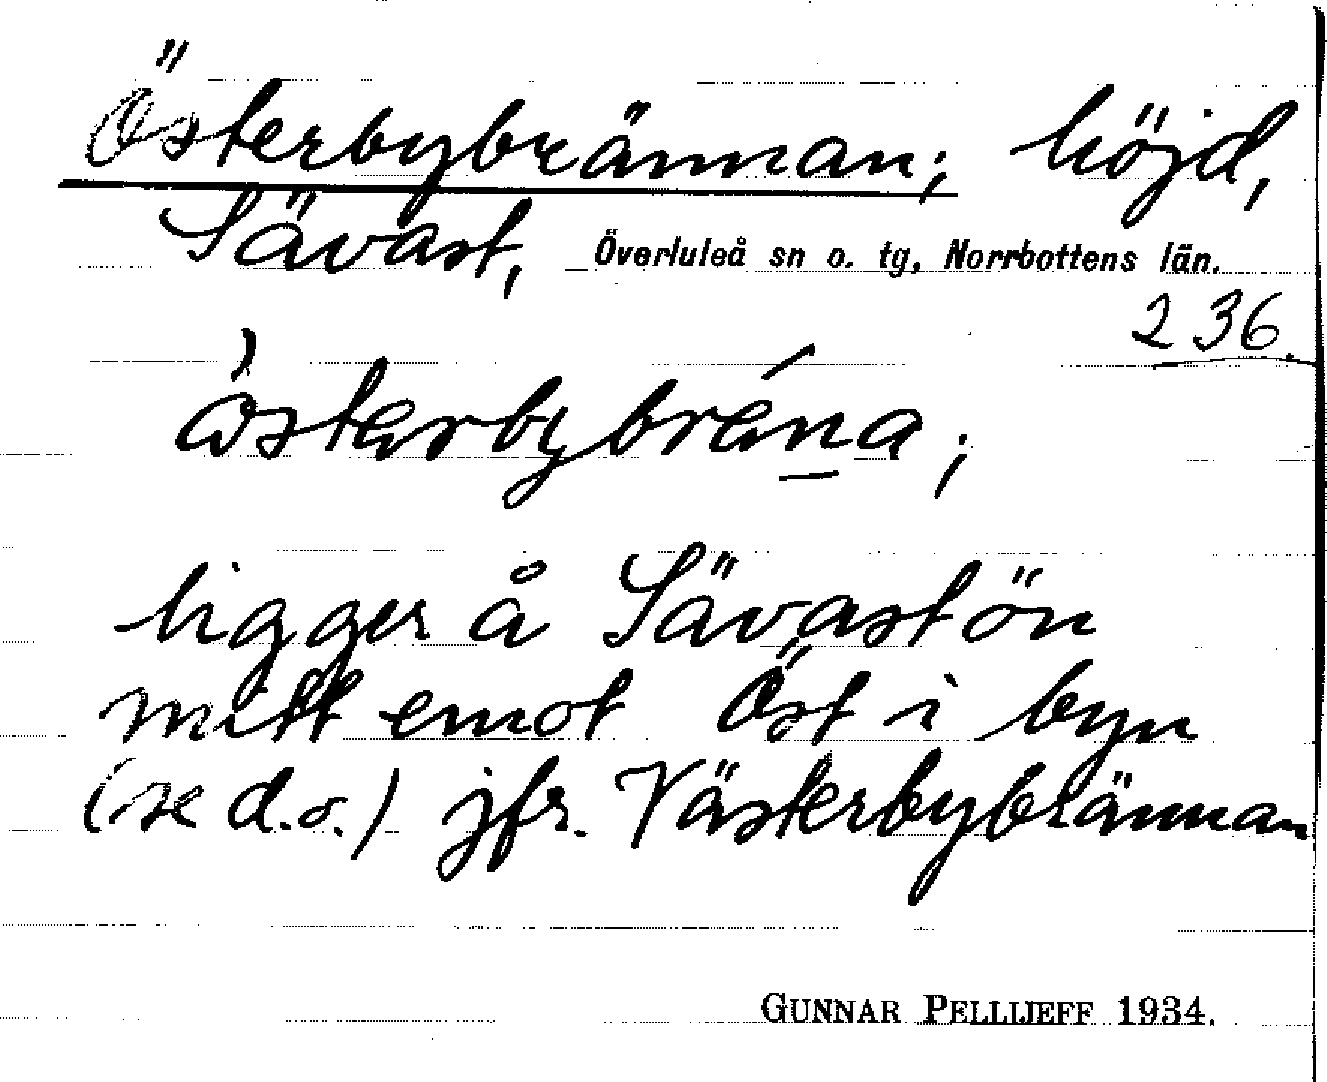 Österbybrännan; höjd,
Sävast, Överluleå sn o. tg, Norrbottens län.
236.
österbybréna;
ligger å Sävastön
mitt emot Öst i byn
(se d.o.) jfr. Västerbybrännan
GUNNAR PELLIJEFF 1934.